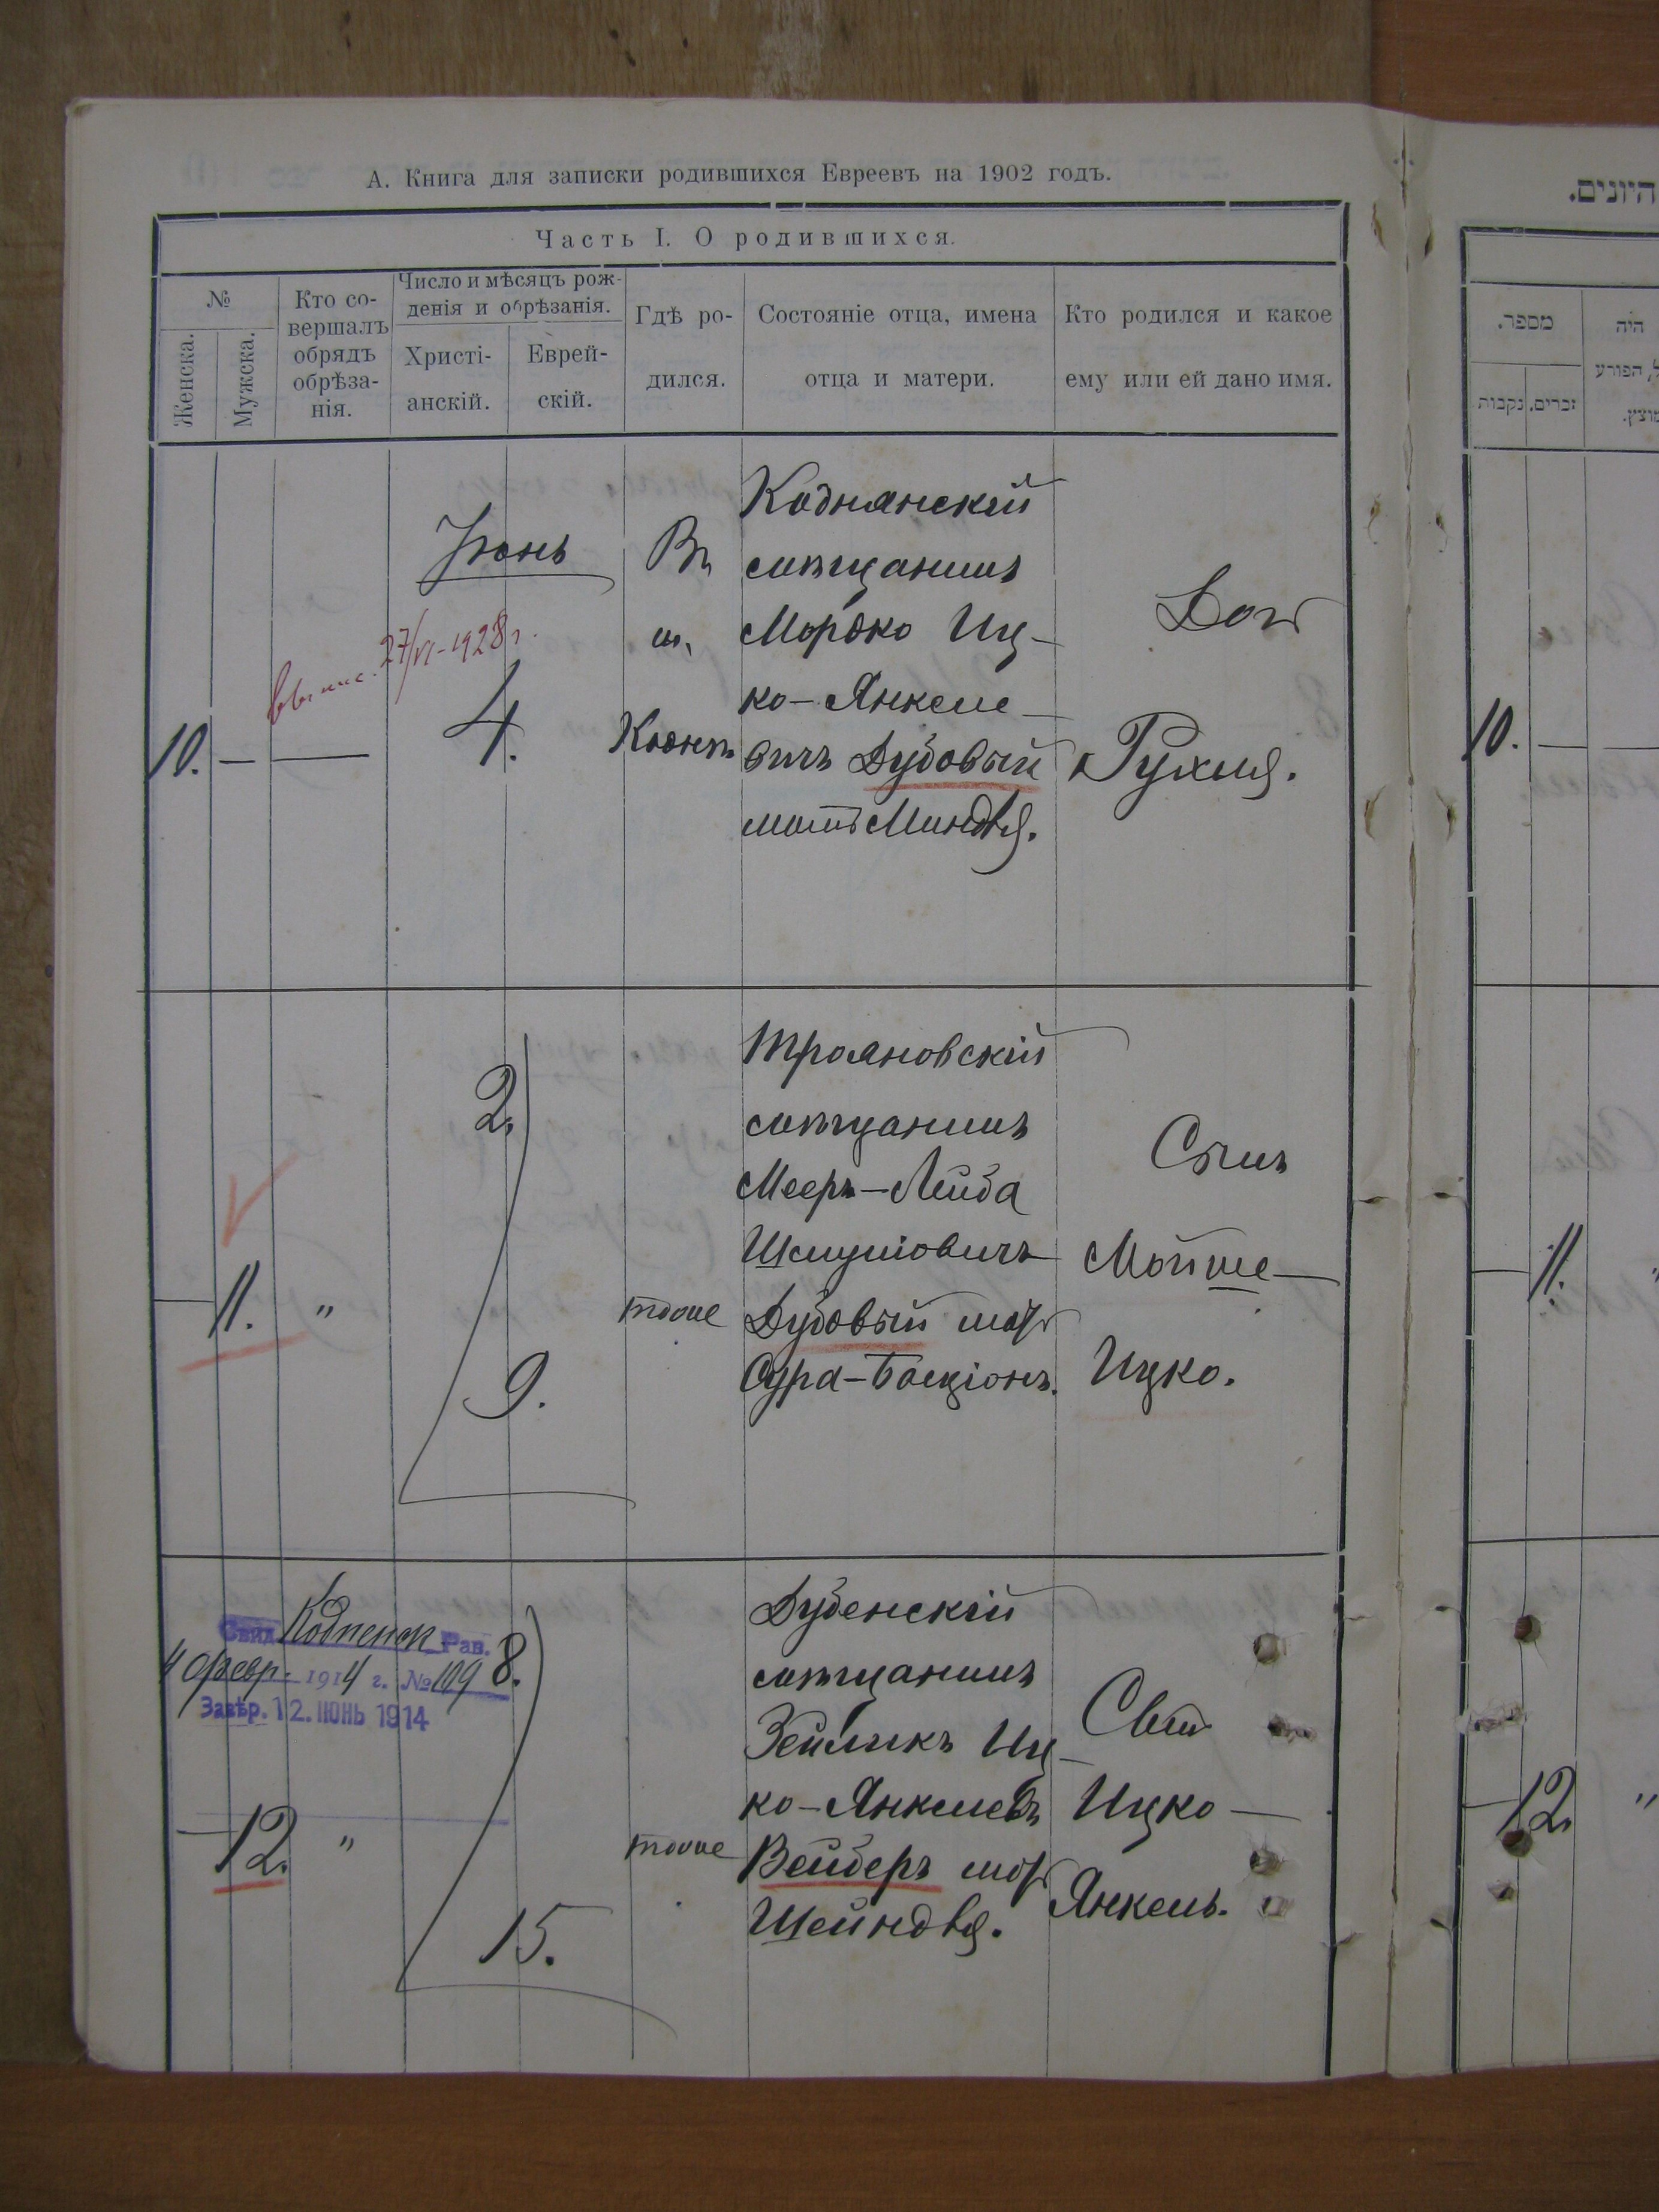 А. Книга для записки родившихся Евреевъ на 1902 годъ.
Часть I. О родившихся.
№
Женска.
Мужска.
Кто со-
вершалъ
обрядъ
обрѣза-
нія.
Число и мѣсяцъ рож-
денія и обрѣзанія.
Христі-
анскій.
Еврей-
скій.
Гдѣ ро-
дился.
Состояніе отца, имена
отца и матери.
Кто родился и какое
ему или ей дано имя.
10.
—
—
27/VI-1928 г.
Іюнь
4.
Въ
м.
Коднѣ
Коднянскій
мѣщанинъ
Мордко Иц-
ко-Янкеле-
вичъ Дубовый
мать Миндля.
Дочь
Рухля.
—
11.
"
2.
9.
тоже
Трояновскій
мѣщанинъ
Мееръ-Лейба
Шмулiовичъ
Дубовый мать
Сура-Басціонъ.
Сынъ
Мойше-
Ицко.
Свид Кодненск Рав.
4 февр. 1914 г. № 109
Завѣр. 12. ІЮНЬ 1914
—
12.
"
8.
15.
тоже
Дубенскій
мѣщанинъ
Зейликъ Иц-
ко-Янкелевъ
Вейберъ мать
Шейндля.
Ицко-
Янкель.
היונים.
מספר.
זכרים.
נקבות
היה
10.
—
—
11.
—
12.
"